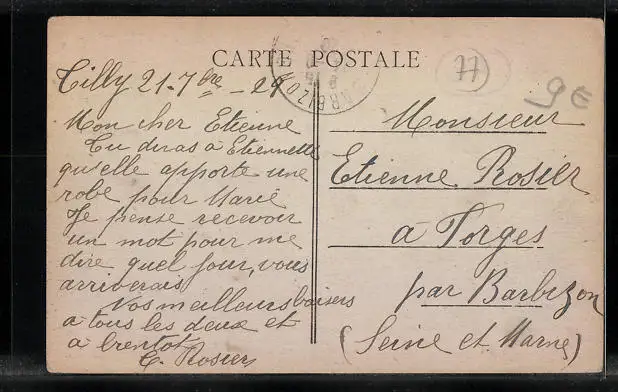 CARTE POSTALE
Tilly 21-7bre - 29
Mon cher Etienne
Tu diras à Etiennette
qu'elle apporte une
robe pour Marie
Je pense recevoir
un mot pour me
dire quel jour, vous
arriverais
Vos meilleurs baisers
a tous les deux et
a brentot
C. Rosier
BARBIZON
77
9€
Monsieur
Etienne Rosier
à Forges
par Barbizon
(Seine et Marne)